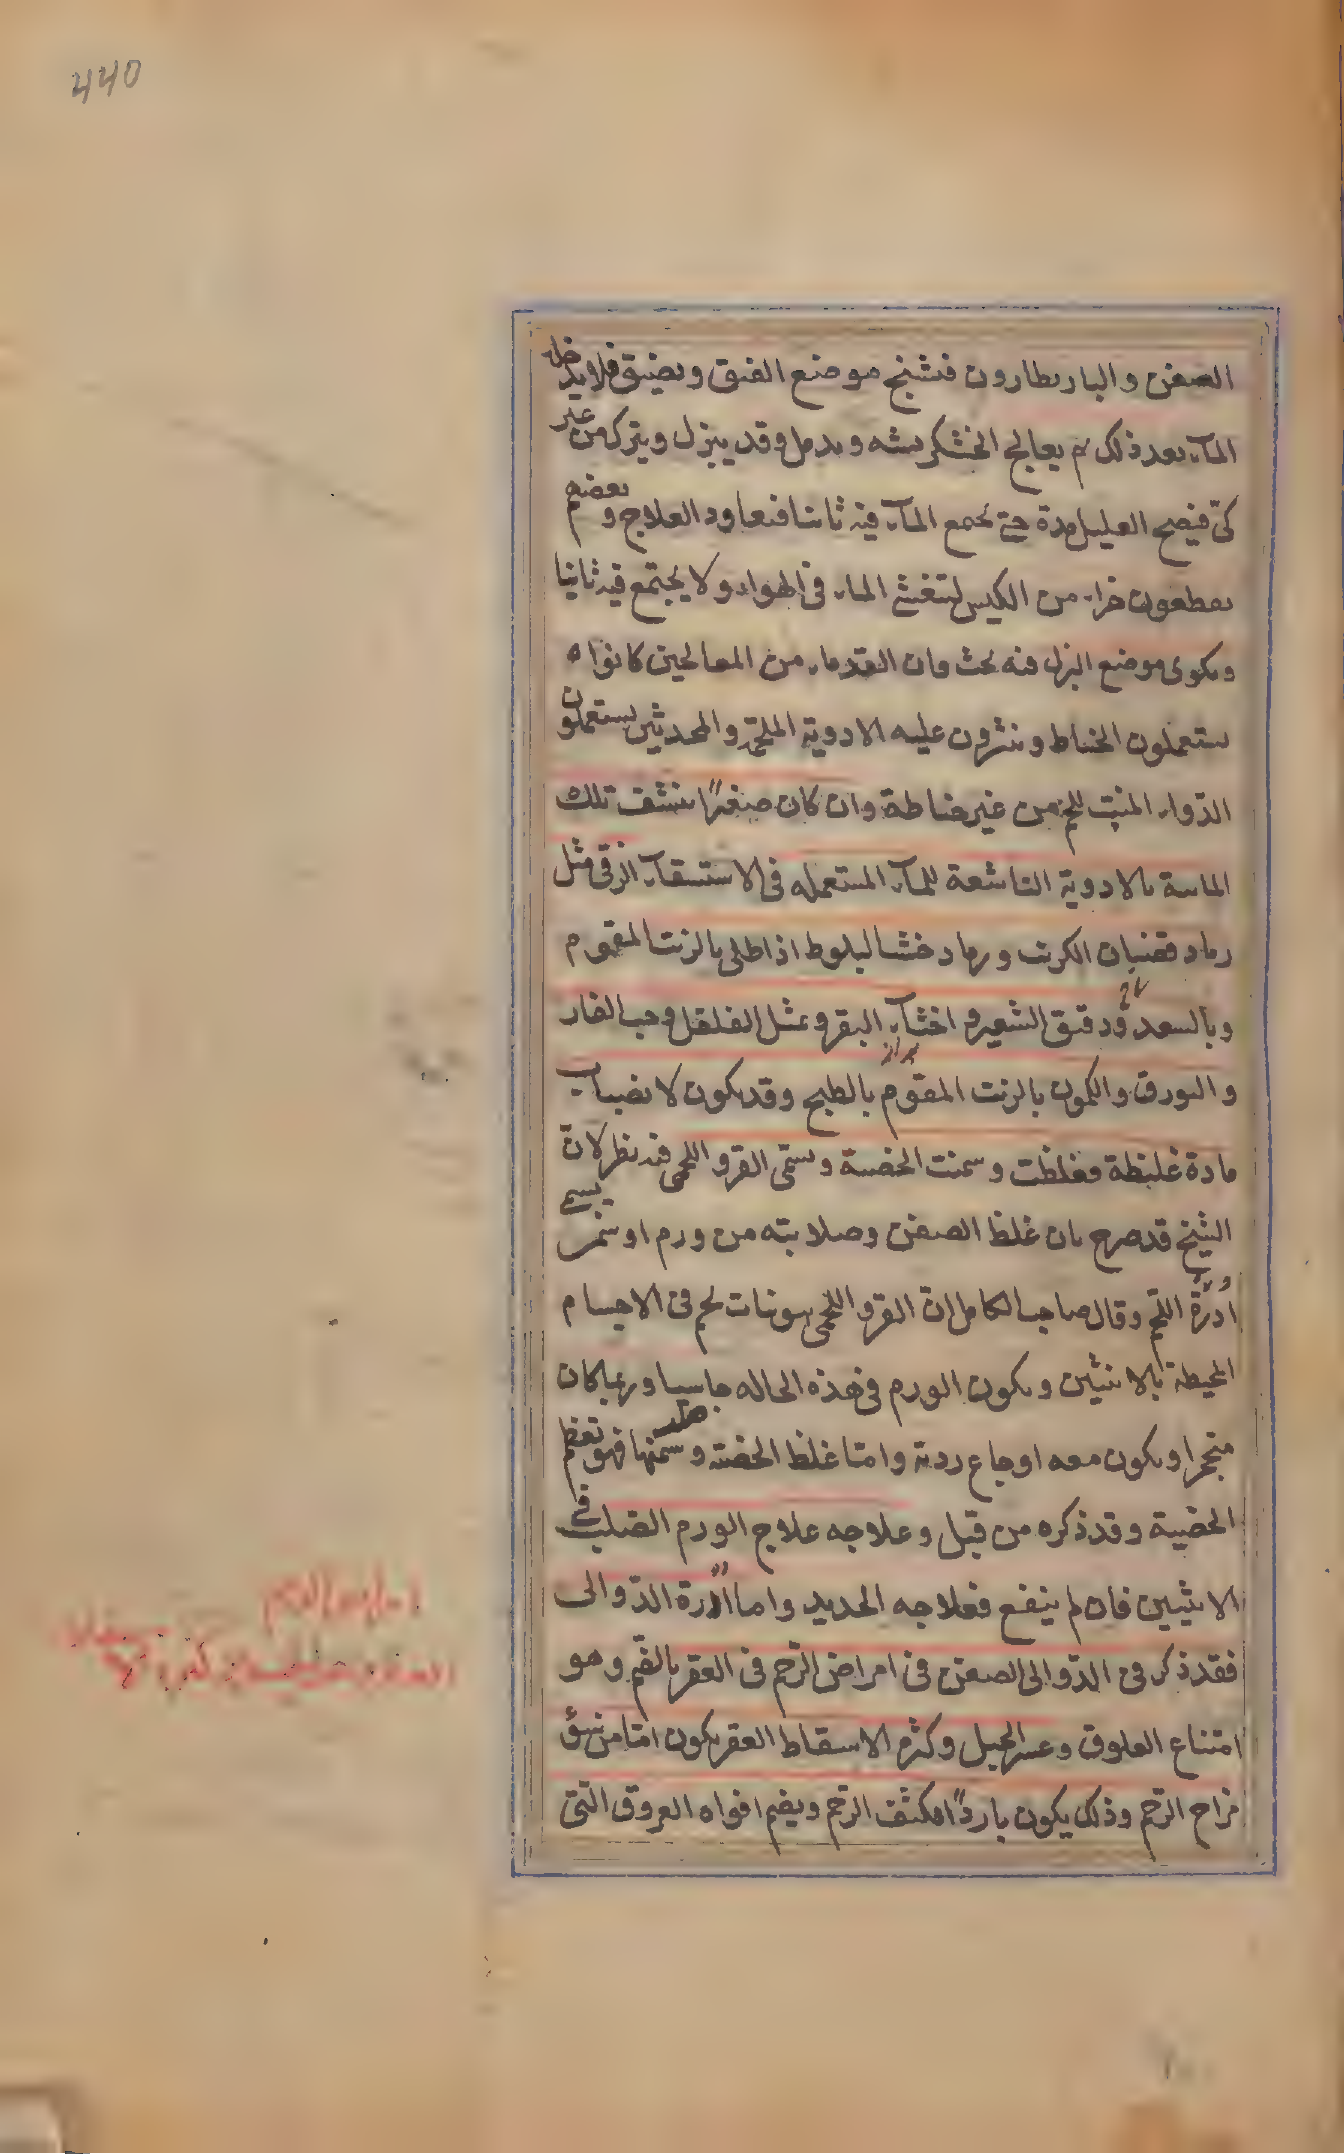 440
الصفن والباريطارون فتشنج موضع الفتق ويضيق فلا يدخله
الماء بعد ذلك ثم يعالج الخشكريشه ويدمل وقد يبزل ويترك من غير
كىّ فيصح العليل مدة حتى يجمع الماء فيه ثانيا فيعاود العلاج وبعضهم
يقطعون جزاء من الكيس لتنفشى الماء فى الهواء ولا يجتمع فيه ثانيا
ويكوى موضع البزل فيه بحث وان القدماء من المعالجين كانوا
يستعملون الخياط وينثرون عليه الادوية الملحمة والمحدثين يستعملون
الدّواء المنبت للحم من غير خياطة وان كان صغيرًا ينشف تلك
المائية بالادوية الناشفة للماء المستعمله فى الاستسقاء الزقى مثل
رماد قضبان الكرنب ورماد خشب البلوط اذا طلى بالزيت المقوم
وبالسعد ودقيق الشعير واخثاء البقر ومثل الفلفل وحب الغار
والبورق والكمون بالزيت المقوم بالطبخ وقد يكون لانصباب
مادة غليظة فغلظت وسمنت الخصية ويسمّى القرو اللحمى فيه نظر لان
الشيخ قد صرح بان غلظ الصفن وصلابته من ورم او سمن يسمى
ادرة اللحم وقال صاحب الكامل انّ القرو اللحمى هو نبات لحم فى الاجسام
المحيطة بالانثيين ويكون الورم فى هذه الحاله جاسيا وربما كان
متحجرا ويكون معه اوجاع ردية وامّا غلظ الخصية وسمنها فهو تعظم
الخصية وقد ذكره من قبل وعلاجه علاج الورم الصلب فى
الانثيين فان لم ينفع فعلاجه الحديد واما ادرة الدّوالى
فقد ذكر فى الدّوالى الصفن فى امراض الرّحم فى العقر بالضم وهو
امتناع العلوق وعسر الحبل وكثرة الاسقاط العقر يكون امّا من سوء
مزاج الرّحم وذلك يكون باردًا مكثف الرّحم ويضم افواه العروق التى